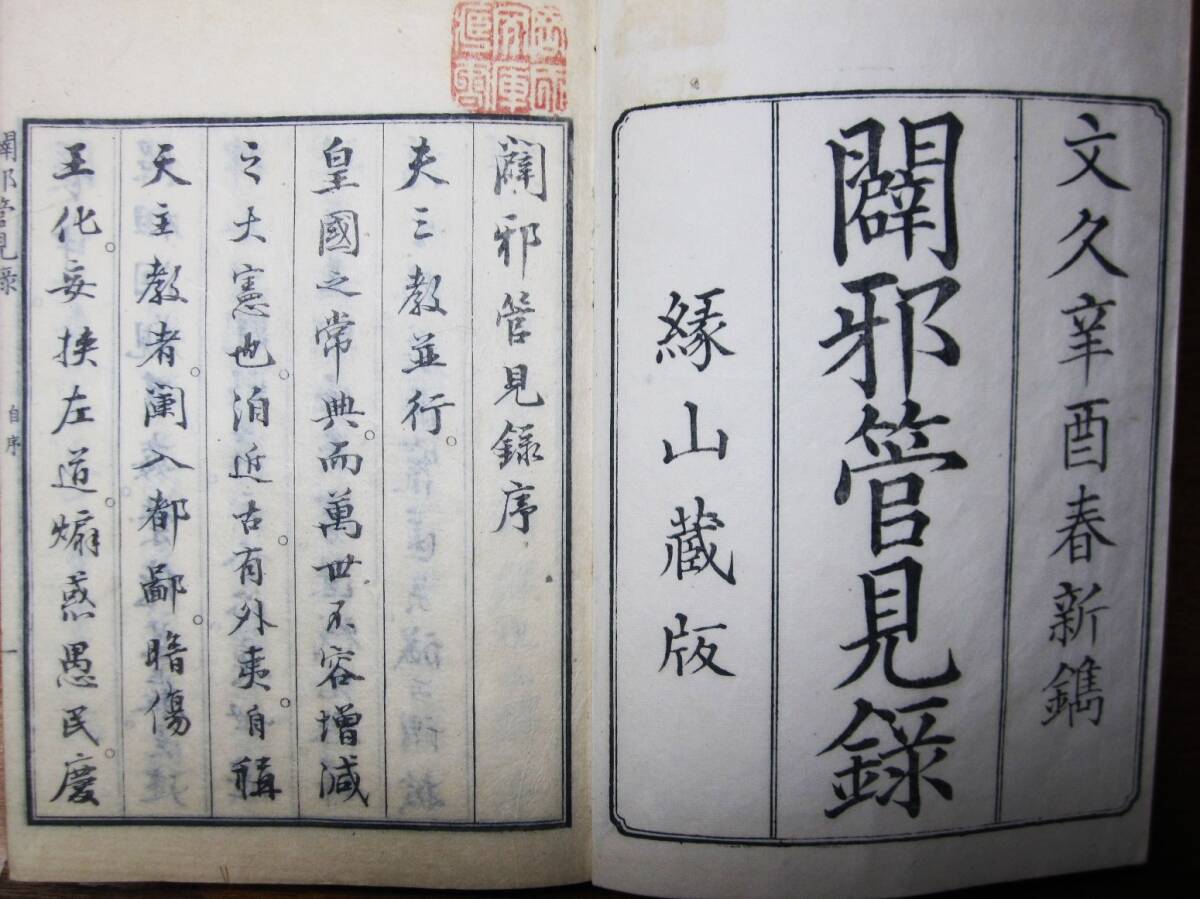 文久辛酉春新鐫
闢邪管見録
緣山蔵版
闢邪管見録序
夫三教並行。
皇國之常典。而萬世不容增減
之大憲也。洎近古。有外夷。自稱
天主教者。闌入都鄙。暗傷
王化。妄挾左道。煽惑愚民。慶
闢邪管見録
自序
一